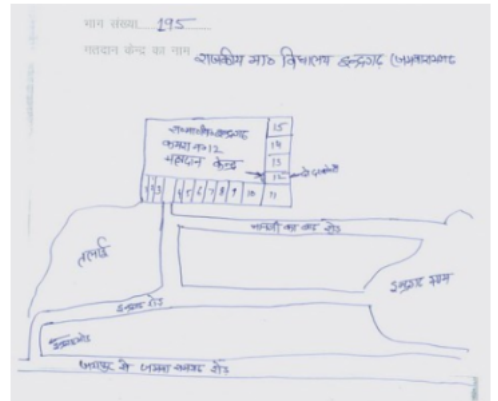 भाग संख्या 195
मतदान केन्द्र का नाम राजकीय मा० विद्यालय इन्द्रगढ़ (जमवारामगढ़
रा०मा०वि० इन्द्रगढ़
कमरा न० 12
मतदान केन्द्र
15
14
13
12
1 2 3 4 5 6 7 8 9 10 11
का बाड रोड
तलाई
इन्द्रगढ़ ग्राम
इन्द्रगढ़ रोड
इन्द्रगढ़ मोड
जयपुर से जमवा रामगढ रोड